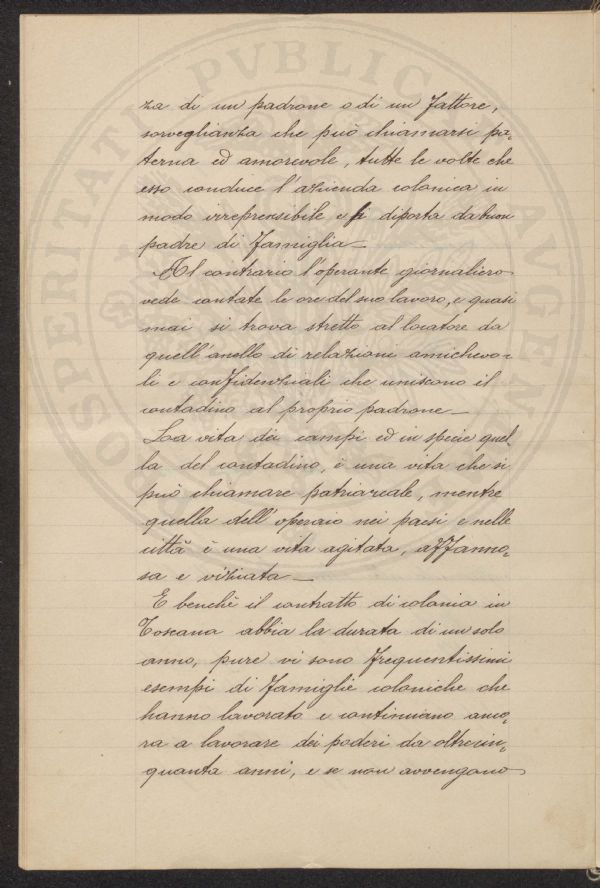 PROSPERITATI PVBLICAE AVGENDAE
za di un padrone o di un fattore,
sorveglianza che può chiamarsi pa-
terna ed amorevole, tutte le volte che
esso conduce l'azienda colonica in
modo irreprensibile e si diporta da buon
padre di famiglia_
Al contrario l'operante giornaliero
vede contate le ore del suo lavoro, e quasi
mai si trova stretto al locatore da
quell'anello di relazioni amichevo-
li e confidenziali che uniscono il
contadino al proprio padrone_
La vita dei campi ed in specie quel-
la del contadino, è una vita che si
può chiamare patriarcale, mentre
quella dell'operaio nei paesi e nelle
città è una vita agitata, affanno-
sa e viziata_
E benchè il contratto di colonia in
Toscana abbia la durata di un solo
anno, pure vi sono frequentissimi
esempi di famiglie coloniche che
hanno lavorato e continuano anco-
ra a lavorare dei poderi da oltre cin-
quanta anni, e se non avvengano